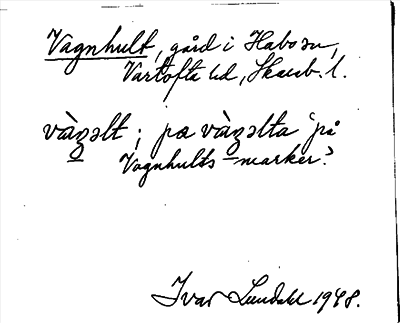 Vagnhult, gård i Habo sn,
Vartofta hd, Skarab. l.
vàgəlt ; pa vàgəlta 'på
Vagnhults-marker'.
Ivar Lundahl 1948.